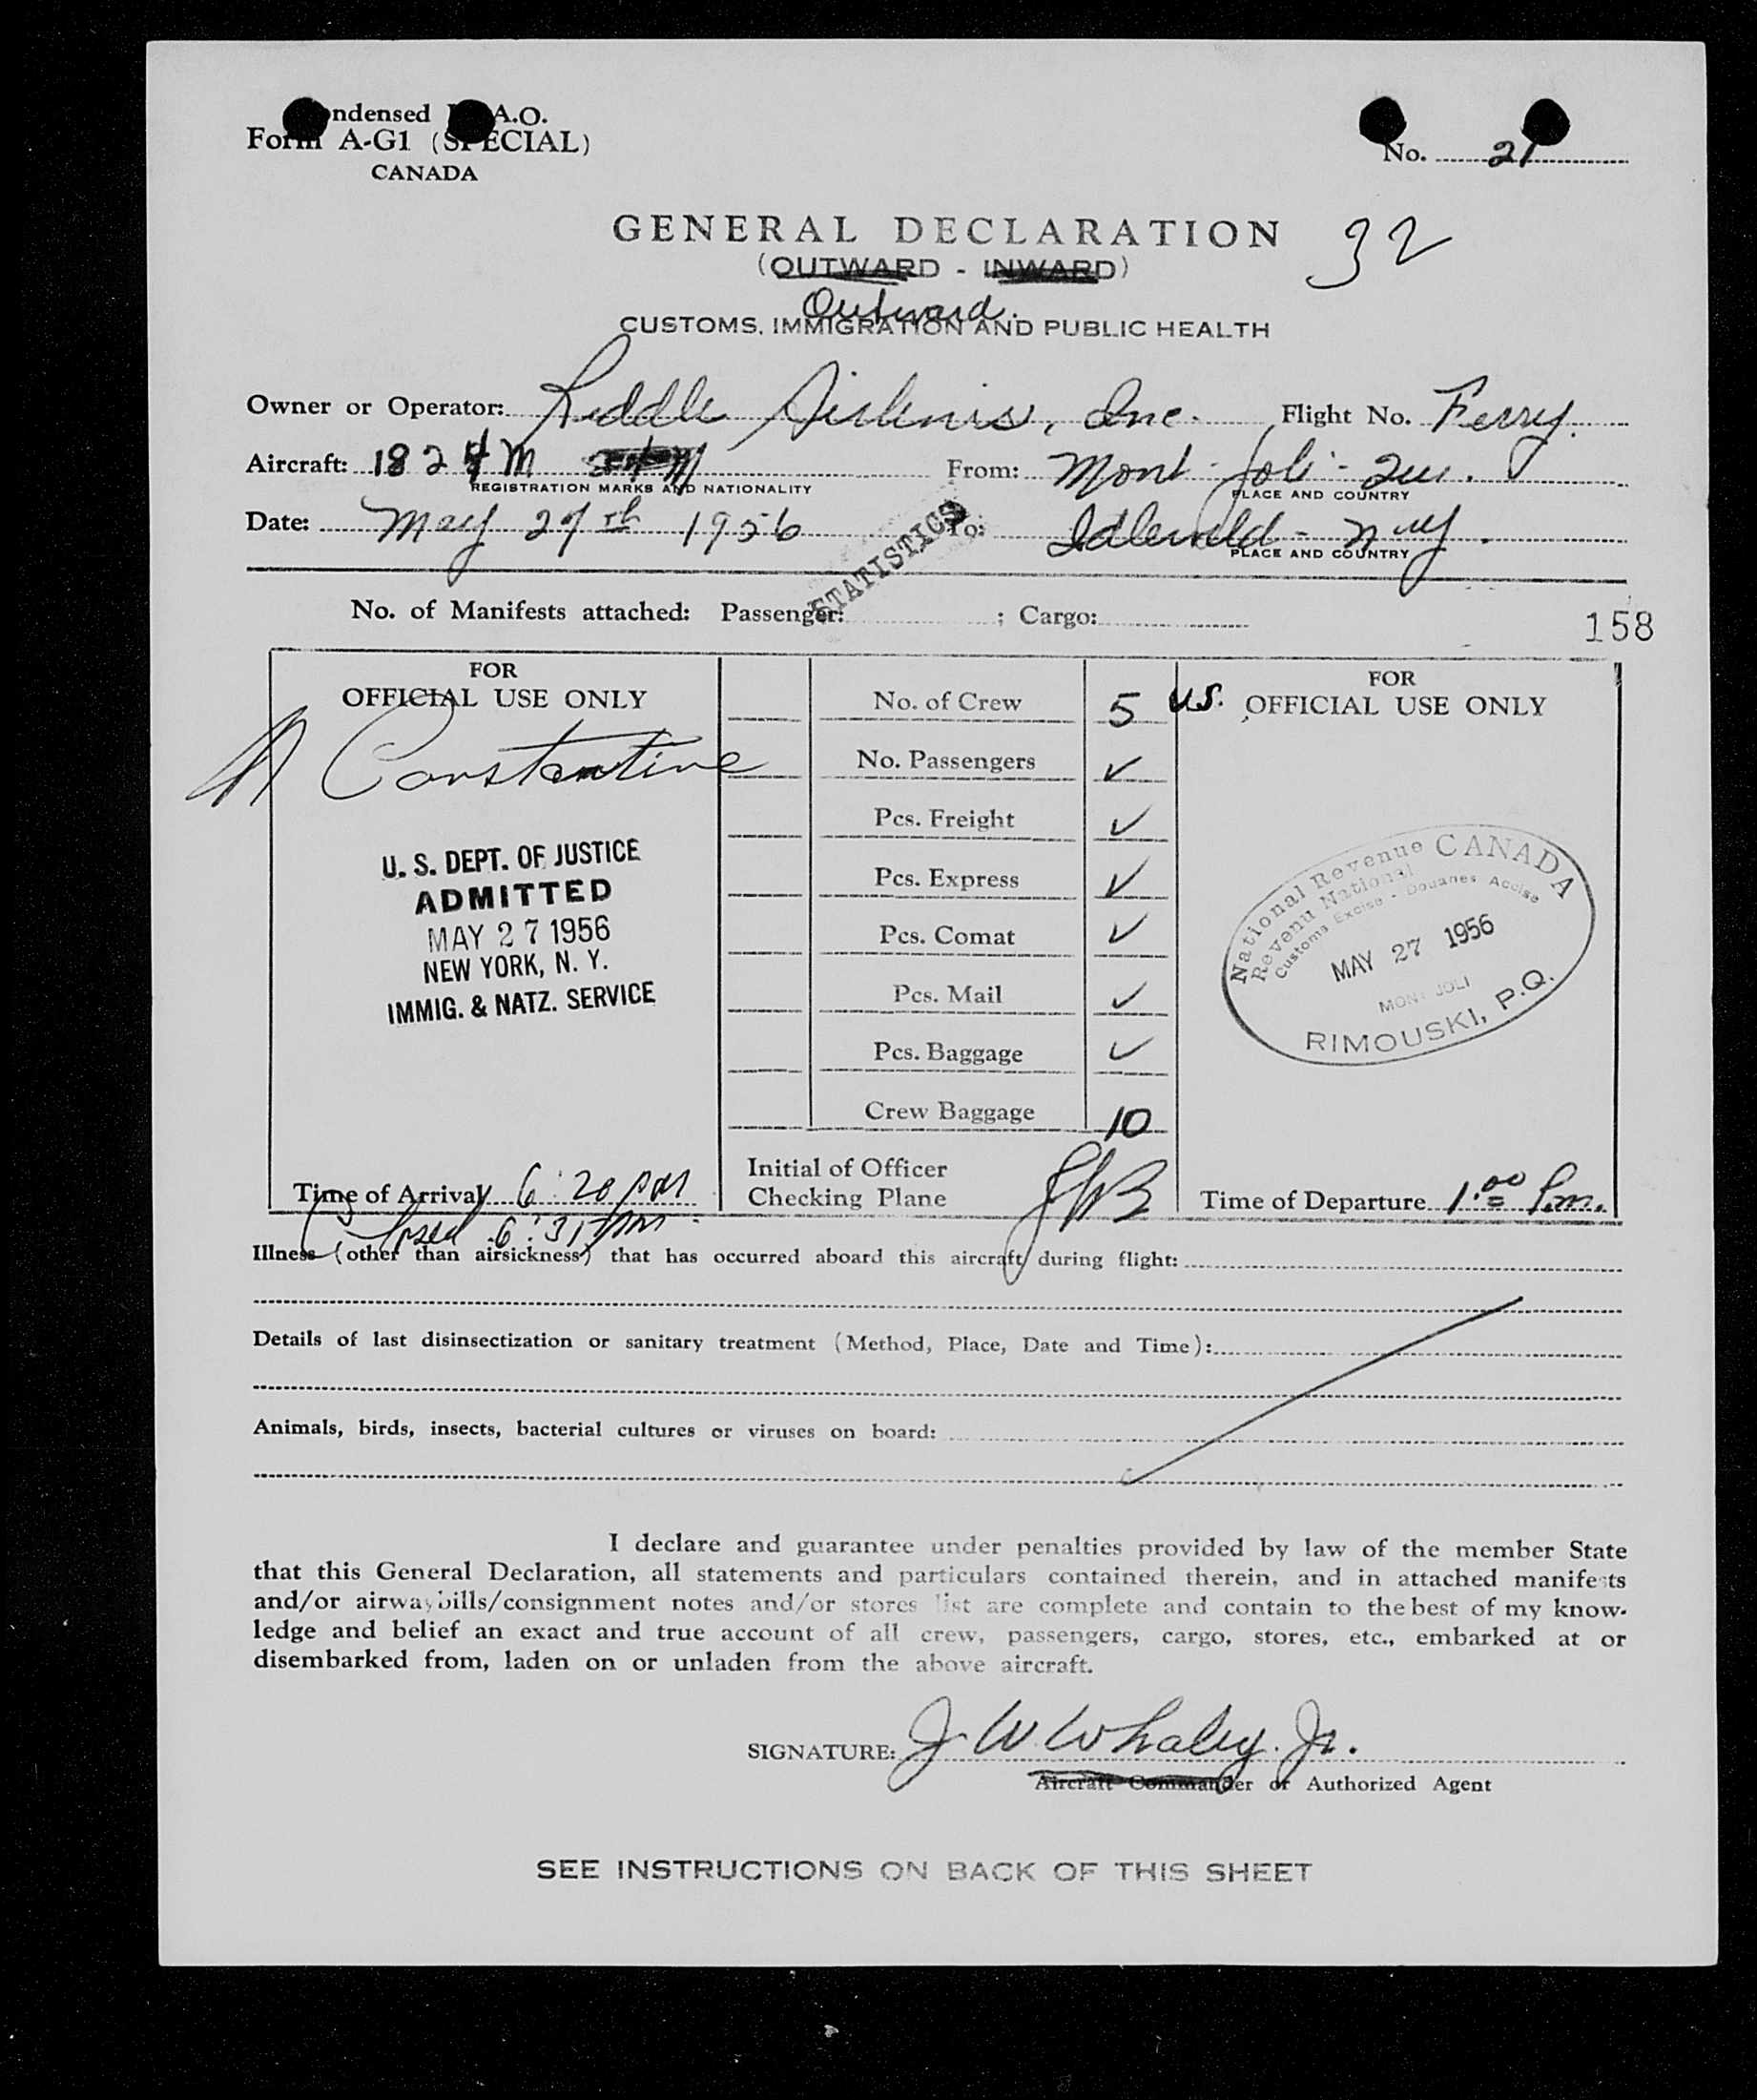 Condensed I.C.A.O.
Form A-G1 (SPECIAL)
CANADA
No. 21
GENERAL DECLARATION 32
(OUTWARD - INWARD)
Outward.
CUSTOMS, IMMIGRATION AND PUBLIC HEALTH
Owner or Operator: Riddle Airlines, Inc. Flight No. Ferry.
Aircraft: 1824M From: Mont-Joli-Que.
REGISTRATION MARKS AND NATIONALITY PLACE AND COUNTRY
Date: May 27th 1956 To: Idlewild - N.Y.
PLACE AND COUNTRY
STATISTICS
No. of Manifests attached: Passenger: ; Cargo:
158
FOR
OFFICIAL USE ONLY
Constantine
U. S. DEPT. OF JUSTICE
ADMITTED
MAY 27 1956
NEW YORK, N. Y.
IMMIG. & NATZ. SERVICE
Time of Arrival 6:20 PM
6:31 PM
No. of Crew 5 U.S.
No. Passengers ✓
Pcs. Freight ✓
Pcs. Express ✓
Pcs. Comat ✓
Pcs. Mail ✓
Pcs. Baggage ✓
Crew Baggage 10
Initial of Officer
Checking Plane
FOR
OFFICIAL USE ONLY
National Revenue CANADA
Revenu National
Customs Excise - Douanes Accise
MAY 27 1956
MONT JOLI
RIMOUSKI, P.Q.
Time of Departure 1:00 P.m.
Illness (other than airsickness) that has occurred aboard this aircraft during flight:
Details of last disinsectization or sanitary treatment (Method, Place, Date and Time):
Animals, birds, insects, bacterial cultures or viruses on board:
I declare and guarantee under penalties provided by law of the member State
that this General Declaration, all statements and particulars contained therein, and in attached manifests
and/or airwaybills/consignment notes and/or stores list are complete and contain to the best of my know-
ledge and belief an exact and true account of all crew, passengers, cargo, stores, etc., embarked at or
disembarked from, laden on or unladen from the above aircraft.
SIGNATURE: J W Whaley. Jr.
Aircraft Commander or Authorized Agent
SEE INSTRUCTIONS ON BACK OF THIS SHEET